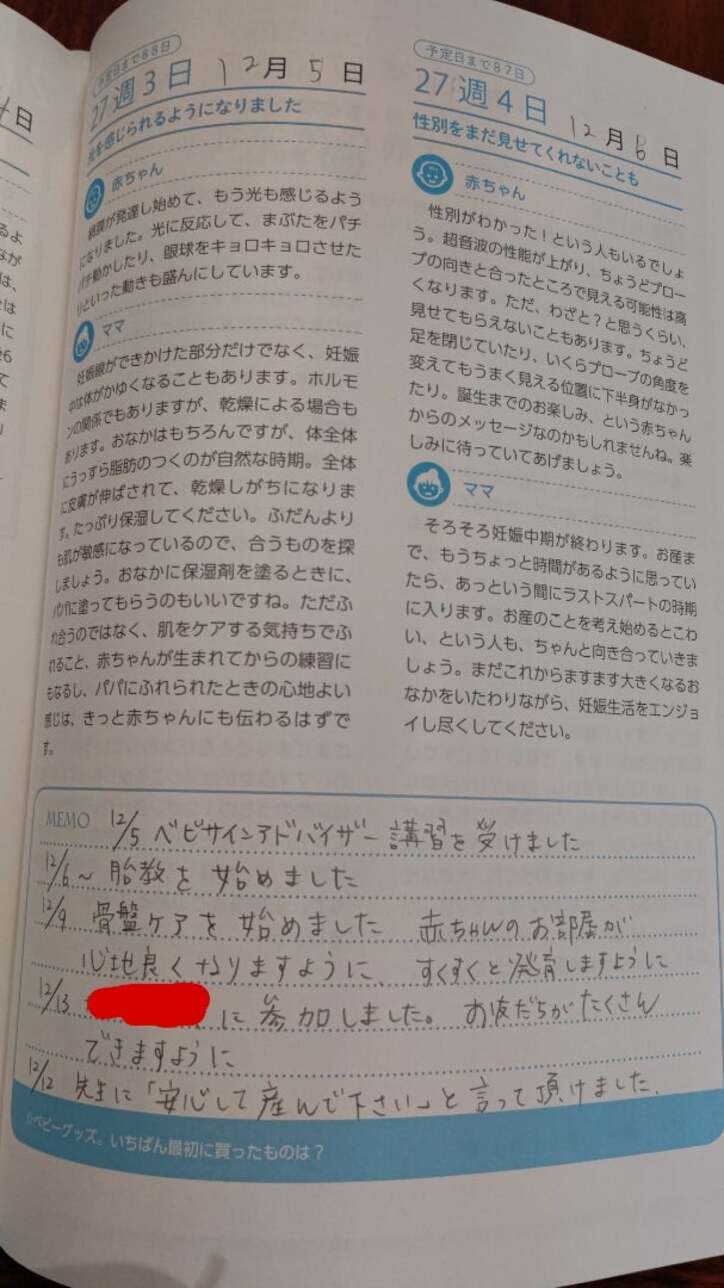 日
予定日まで88日
27週3日 12月5日
光を感じられるようになりました
赤ちゃん
網膜が発達し始めて、もう光も感じるよう
になりました。光に反応して、まぶたをパチ
パチ動かしたり、眼球をキョロキョロさせた
りといった動きも盛んにしています。
ママ
妊娠線ができかけた部分だけでなく、妊娠
中は体がかゆくなることもあります。ホルモ
ンの関係でもありますが、乾燥による場合も
あります。おなかはもちろんですが、体全体
にうっすら脂肪のつくのが自然な時期。全体
に皮膚が伸ばされて、乾燥しがちになりま
す。たっぷり保湿してください。ふだんより
も肌が敏感になっているので、合うものを探
しましょう。おなかに保湿剤を塗るときに、
パパに塗ってもらうのもいいですね。ただふ
れ合うのではなく、肌をケアする気持ちでふ
れること、赤ちゃんが生まれてからの練習に
もなるし、パパにふれられたときの心地よい
感じは、きっと赤ちゃんにも伝わるはずで
す。
予定日まで87日
27週4日 12月6日
性別をまだ見せてくれないことも
赤ちゃん
性別がわかった!という人もいるでしょ
う。超音波の性能が上がり、ちょうどプロー
ブの向きと合ったところで見える可能性は高
くなります。ただ、わざと?と思うくらい、
見せてもらえないこともあります。ちょうど
足を閉じていたり、いくらプローブの角度を
変えてもうまく見える位置に下半身がなかっ
たり。誕生までのお楽しみ、という赤ちゃん
からのメッセージなのかもしれませんね。楽
しみに待っていてあげましょう。
ママ
そろそろ妊娠中期が終わります。お産ま
で、もうちょっと時間があるように思ってい
たら、あっという間にラストスパートの時期
に入ります。お産のことを考え始めるとこわ
い、という人も、ちゃんと向き合っていきま
しょう。まだこれからますます大きくなるお
なかをいたわりながら、妊娠生活をエンジョ
イし尽くしてください。
MEMO 12/5 ベビサインアドバイザー講習を受けました
12/6~ 胎教を始めました
12/9 骨盤ケアを始めました 赤ちゃんのお部屋が
心地良くなりますように、すくすくと発育しますように
12/13 に参加しました。お友だちがたくさん
できますように
12/12 先生に「安心して産んで下さい」と言って頂けました。
ベビーグッズ。いちばん最初に買ったものは?